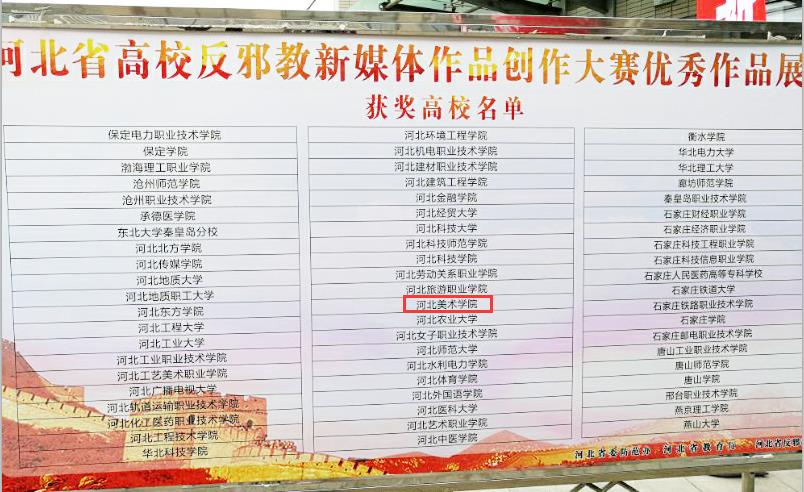 河北省高校反邪教新媒体作品创作大赛优秀作品展
获奖高校名单
保定电力职业技术学院
保定学院
渤海理工职业学院
沧州师范学院
沧州职业技术学院
承德医学院
东北大学秦皇岛分校
河北北方学院
河北传媒学院
河北地质大学
河北地质职工大学
河北东方学院
河北工程大学
河北工业大学
河北工业职业技术学院
河北工艺美术职业学院
河北广播电视大学
河北轨道运输职业技术学院
河北化工医药职业技术学院
河北工程技术学院
华北科技学院
河北环境工程学院
河北机电职业技术学院
河北建材职业技术学院
河北建筑工程学院
河北金融学院
河北经贸大学
河北科技大学
河北科技师范学院
河北科技学院
河北劳动关系职业学院
河北旅游职业学院
河北美术学院
河北农业大学
河北女子职业技术学院
河北师范大学
河北水利电力学院
河北体育学院
河北外国语学院
河北医科大学
河北艺术职业学院
河北中医学院
衡水学院
华北电力大学
华北理工大学
廊坊师范学院
秦皇岛职业技术学院
石家庄财经职业学院
石家庄经济职业学院
石家庄科技工程职业学院
石家庄科技信息职业学院
石家庄人民医药高等专科学校
石家庄铁道大学
石家庄铁路职业技术学院
石家庄学院
石家庄邮电职业技术学院
唐山工业职业技术学院
唐山师范学院
唐山学院
邢台职业技术学院
燕京理工学院
燕山大学
河北省委防范办·河北省教育厅 河北省反邪